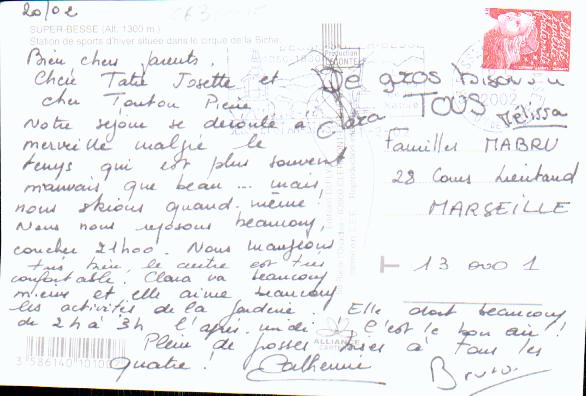 20/02
SUPER-BESSE (Alt. 1300 m.)
Station de sports d'hiver située dans le cirque de la Biche.
Bien chers parents,
Chère Tatie Josette et
cher Tonton Pierre
Notre séjour se déroule à
merveille malgré le
temps qui est plus souvent
mauvais que beau ... mais,
nous skions quand même !
Nous nous reposons beaucoup,
coucher 21h00. Nous mangeons
très bien, le centre est très
confortable. Clara va beaucoup
mieux et elle aime beaucoup
les activités de la garderie. Elle dort beaucoup
de 2h à 3h l'après-midi ! C'est le bon air !
Plein de grosses bises à tous les
quatre !
Catherine
Bruno.
De gros bisous à
TOUS
Clara
Mélissa
2002
Familles MABRU
28 Cours Lieutaud
MARSEILLE
13 000 1
ALLIANCE
3 586140 10100